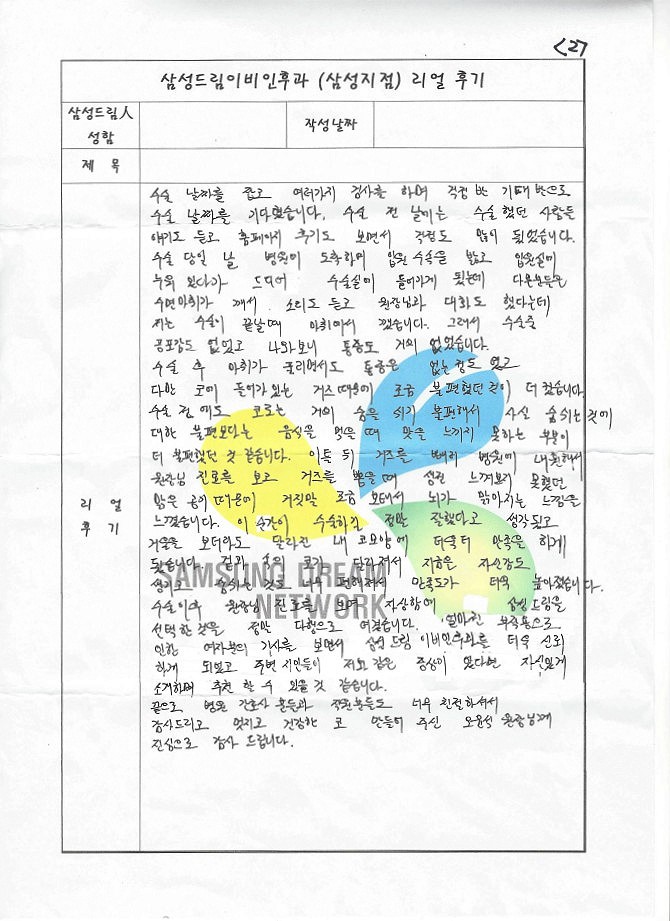 <27
삼성드림이비인후과 (삼성지점) 리얼 후기
삼성드림人
성함
작성날짜
제 목
수술 날짜를 잡고 여러가지 검사를 하며 걱정 반 기대 반으로
수술 날짜를 기다렸습니다. 수술 전 날에는 수술했던 사람들
얘기도 듣고 홈페이지 후기도 보면서 걱정도 많이 됬었습니다.
수술 당일 날 병원에 도착하여 입원 수속을 밟고 입원실에
누워 있다가 드디어 수술실에 들어가게 됬는데 다른분들은
수면마취가 깨서 소리도 듣고 원장님과 대화도 했다는데
저는 수술이 끝날때 마취에서 깼습니다. 그래서 수술중
공포감도 없었고 나와보니 통증도 거의 없었습니다.
수술 후 마취가 풀리면서도 통증은 없는정도 였고
다만 코에 들어가있는 거즈때문에 조금 불편했던 것이 더 컸습니다.
수술 전에도 코로는 거의 숨을 쉬기 불편해서 사실 숨쉬는것에
대한 불편보다는 음식을 먹을 때 맛을 느끼지 못하는 부분이
더 불편했던 것 같습니다. 이틀 뒤 거즈를 빼러 병원에 내원해서
원장님 진료를 보고 거즈를 뽑을때 생전 느껴보지 못했던
맑은 공기 때문에 거짓말 조금 보태서 뇌가 맑아지는 느낌을
느꼈습니다. 이 순간이 수술하길 정말 잘했다고 생각됬고
거울을 보더라도 달라진 내 코모양에 더욱더 만족을 하게
됬습니다. 겉과 속의 코가 달라져서 지금은 자신감도
생기고 숨쉬는것도 너무 편해져서 만족도가 더욱 높아졌습니다.
수술이후 원장님 진료를 보면 자상함에 삼성드림을
선택한것을 정말 다행으로 여겼습니다. 얼마전 부작용으로
인한 여자분의 기사를 보면서 삼성드림 이비인후과를 더욱 신뢰
하게 되었고 주변 지인들이 저와 같은 증상이 있다면 자신있게
소개하며 추천 할 수 있을것 같습니다.
끝으로 병원 간호사 분들과 직원분들도 너무 친절하셔서
감사드리고 멋지고 건강한 코 만들어 주신 원장님께
진심으로 감사 드립니다.
리 얼
후 기
SAMSUNG DREAM
NETWORK